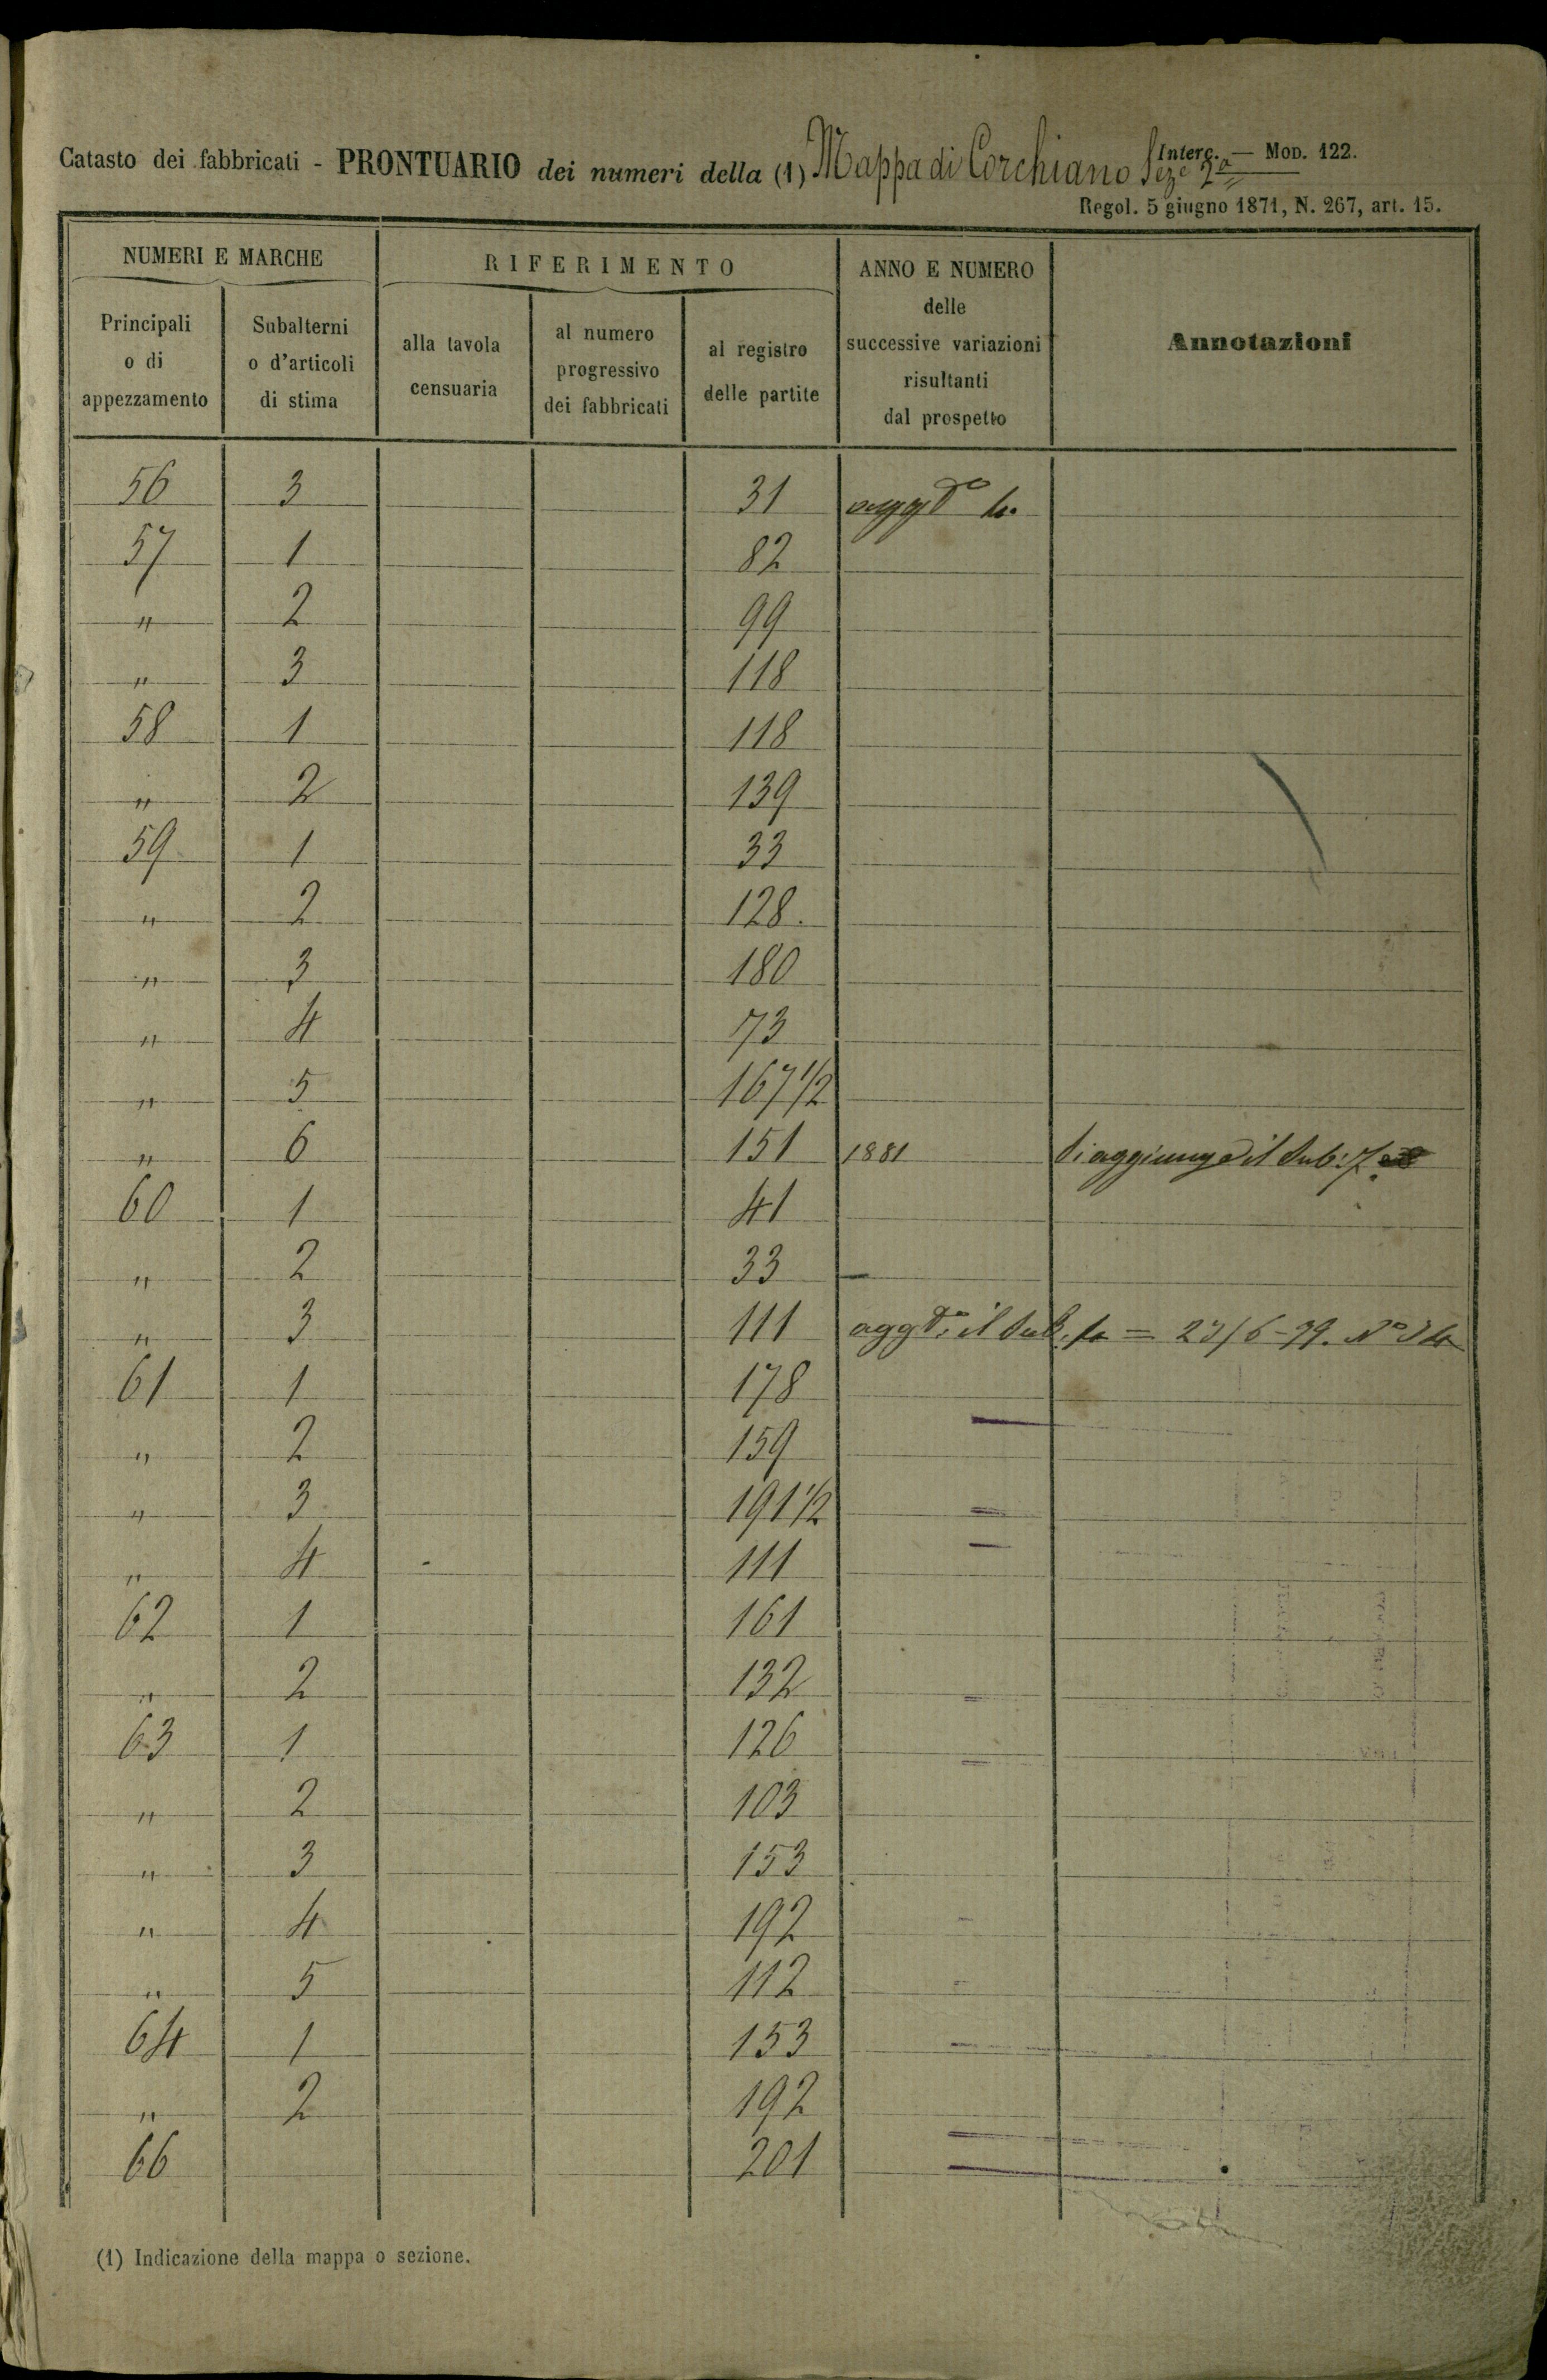 Catasto dei fabbricati - PRONTUARIO dei numeri della (1) Mappa di Corchiano Seze 2a
Interc. — MOD. 122.
Regol. 5 giugno 1871, N. 267, art. 15.
NUMERI E MARCHE RIFERIMENTO ANNO E NUMERO delle successive variazioni risultanti dal prospetto Annotazioni
Principali o di appezzamento Subalterni o d'articoli di stima alla tavola censuaria al numero progressivo dei fabbricati al registro delle partite
56 3 31 aggto 4.
57 1 82
" 2 99
" 3 118
58 1 118
" 2 139
59 1 33
" 2 128.
" 3 180
" 4 73
" 5 167 1/2
" 6 151 1881 Si aggiunge il Sub: 7
60 1 41
" 2 33 —
" 3 111 aggto il Sub. 4 = 23/6-79. No 34
61 1 178
" 2 159
" 3 191 1/2
" 4 111
62 1 161
" 2 132
63 1 126
" 2 103
" 3 153
" 4 192
" 5 112
64 1 153
" 2 192
66 201
(1) Indicazione della mappa o sezione.